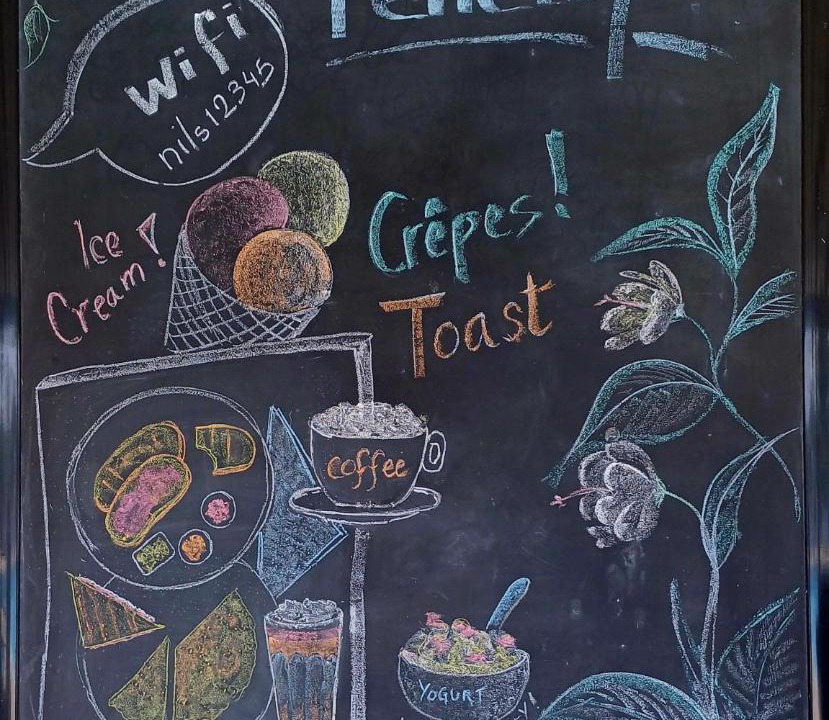 wifi
nils12345
Ice
Cream!
Crêpes!
Toast
coffee
YOGURT